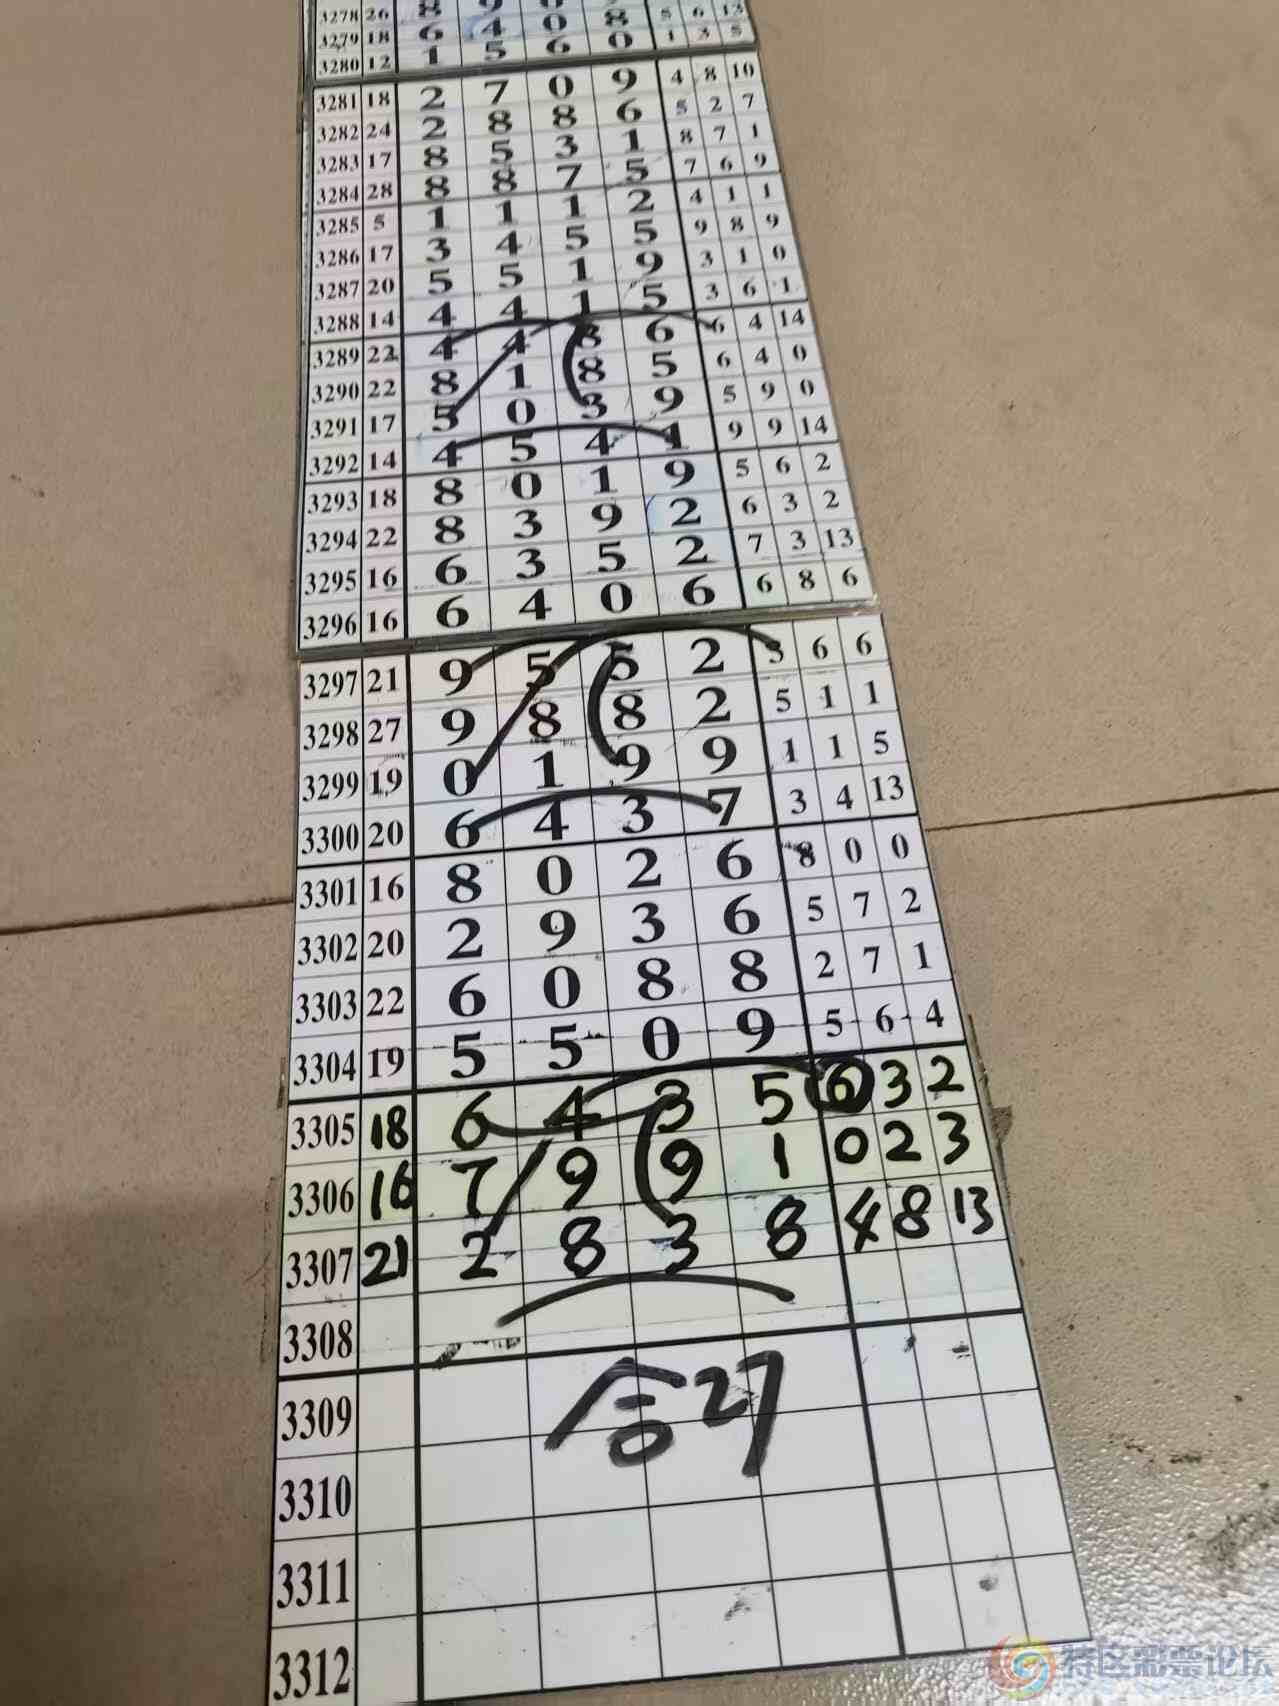 3278 26 8 9 0 8 5 6 13
3279 18 6 4 0 8 1 3 5
3280 12 1 5 6 0
3281 18 2 7 0 9 4 8 10
3282 24 2 8 8 6 5 2 7
3283 17 8 5 3 1 8 7 1
3284 28 8 8 7 5 7 6 9
3285 5 1 1 1 2 4 1 1
3286 17 3 4 5 5 9 8 9
3287 20 5 5 1 9 3 1 0
3288 14 4 4 1 5 3 6 1
3289 22 4 4 8 6 6 4 14
3290 22 8 1 8 5 6 4 0
3291 17 5 0 3 9 5 9 0
3292 14 4 5 4 1 9 9 14
3293 18 8 0 1 9 5 6 2
3294 22 8 3 9 2 6 3 2
3295 16 6 3 5 2 7 3 13
3296 16 6 4 0 6 6 8 6
3297 21 9 5 5 2 3 6 6
3298 27 9 8 8 2 5 1 1
3299 19 0 1 9 9 1 1 5
3300 20 6 4 3 7 3 4 13
3301 16 8 0 2 6 8 0 0
3302 20 2 9 3 6 5 7 2
3303 22 6 0 8 8 2 7 1
3304 19 5 5 0 9 5 6 4
3305 18 6 4 3 5 6 3 2
3306 16 7 9 9 1 0 2 3
3307 21 2 8 3 8 4 8 13
3308
3309 合27
3310
3311
3312
特区彩票论坛